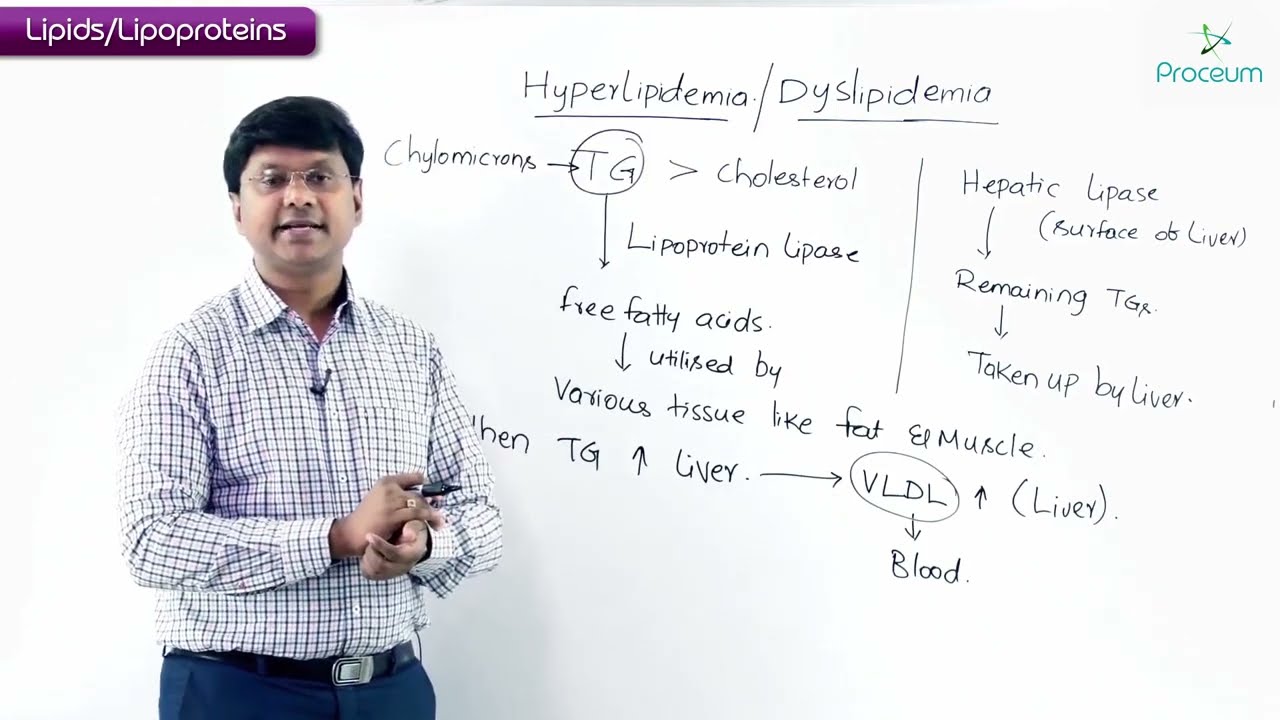 Lipids/Lipoproteins
Proceum
Hyperlipidemia / Dyslipidemia
Chylomicrons → TG > Cholesterol
↓ Lipoprotein lipase
free fatty acids.
↓ utilised by
Various tissue like fat & Muscle.
TG ↑ Liver. → VLDL ↑ (Liver).
↓
Blood.
Hepatic lipase
↓ (surface of Liver)
Remaining TGs.
↓
Taken up by Liver.